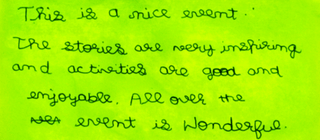 This is a nice event.
The stories are very inspiring
and activities are good and
enjoyable. All over the
event is Wonderful.